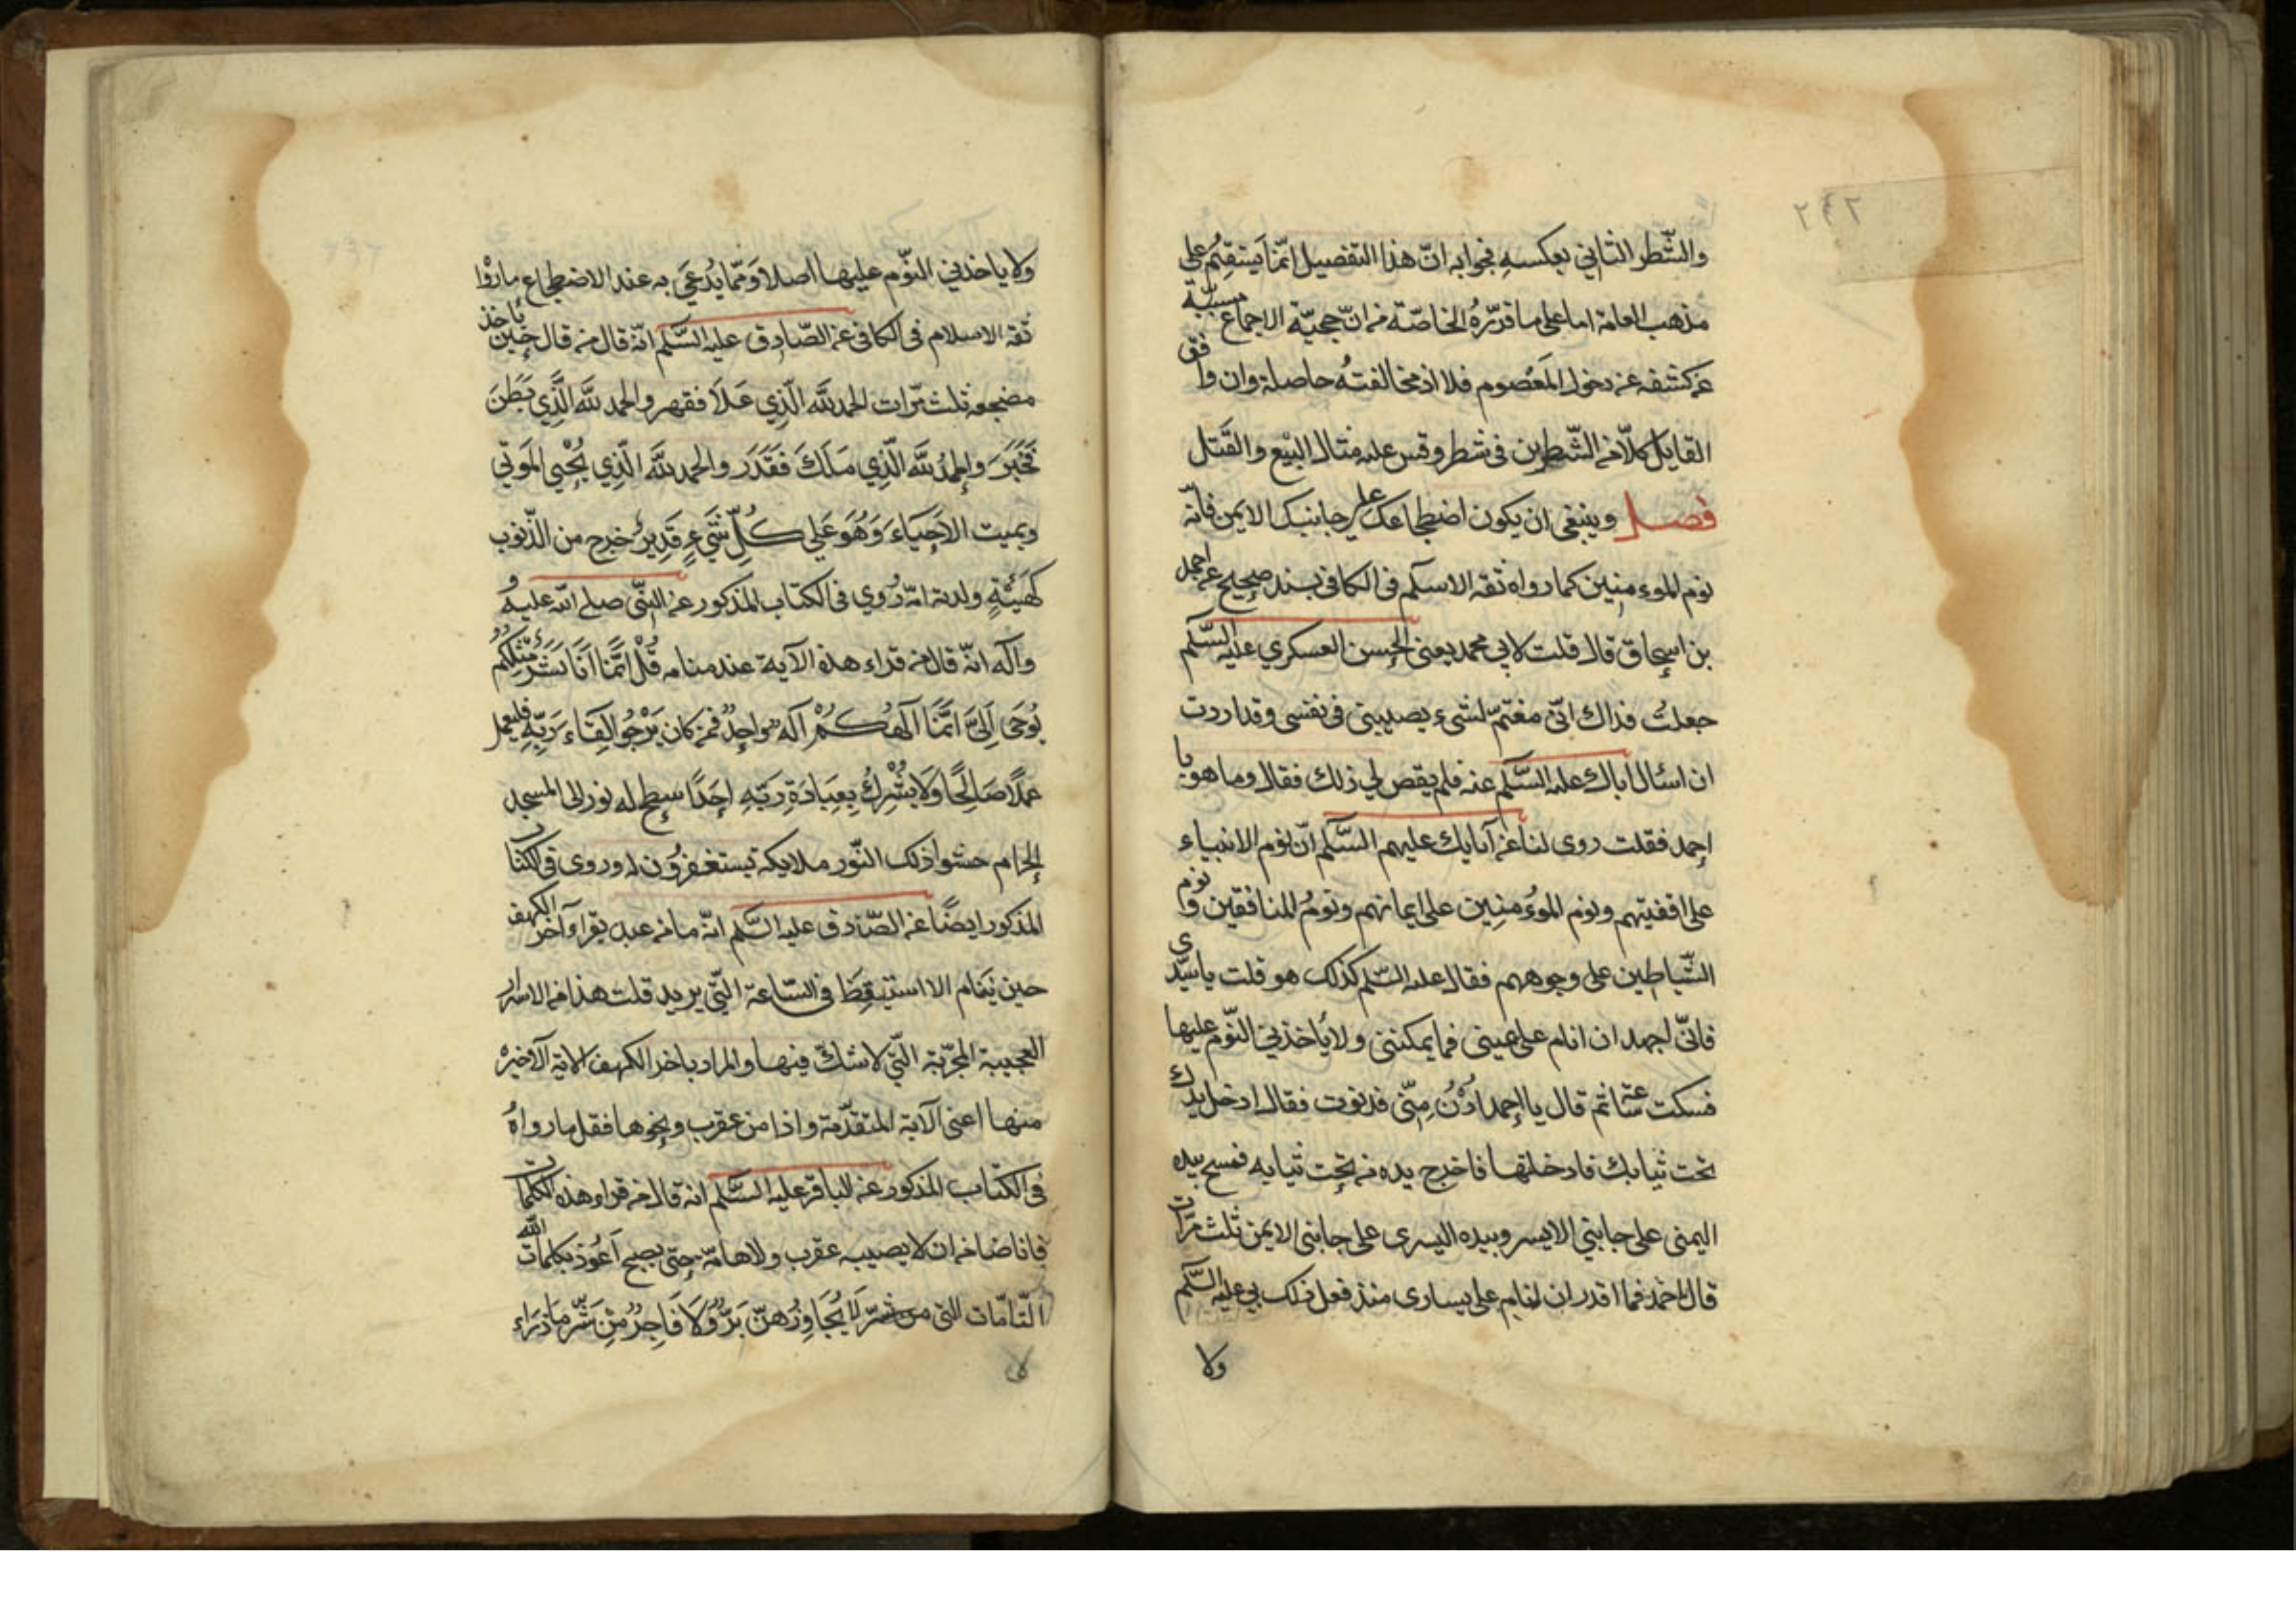 ٢٤٢
والشّطر الثاني بعكسه فجوابه انّ هذا التفصيل انّما يستقيم على
مذهب العامة اما على ما قرّره الخاصّة من انّ حجيّة الاجماع مسببّة
عن كشفه عن دخول المعصوم فلا اذ مخالفته حاصلة وان وافق
القايل كلّا من الشّطرين في شطر وقس عليه مثال البيع والقتل
فصل وينبغى ان يكون اضطجاعك على جانبك الايمن فانّه
نوم الموءمنين كما رواه ثقه الاسلم فى الكافى بسند صحيح عن احمد
بن اسحاق قال قلت لابي محمد يعنى الحسن العسكري عليه السّلم
جعلت فداك انّى مغتمّ لشىء يصيبنى فى نفسى وقد اردت
ان اسئال اباك عليه السّلم عنه فلم يقص لي ذلك فقال وما هو يا
احمد فقلت روى لنا عن آبايك عليهم السّلم انّ نوم الانبياء
على اقفيتهم ونوم الموءمنين على ايمانهم ونوم المنافقين على شمايلهم ونوم
الشّياطين على وجوههم فقال عليه السّلم كذلك هو قلت يا سيّدى
فانّى اجهد ان انام على يمينى فما يمكننى ولا ياخذني النّوم عليها
فسكت ساعة ثم قال يا احمد ادْنُ مِنّى فدنوت فقال ادخل يدك
تحت ثيابك فادخلتها فاخرج يده من تحت ثيابه فمسح بيده
اليمنى على جانبي الايسر وبيده اليسرى على جانبى الايمن ثلث مرّات
قال احمد فما اقدر ان انام على يسارى منذ فعل ذلك بي عليه السّلم
ولا
ولا ياخذني النّوم عليها اصلا وَممّا يُدعَى به عند الاضطجاع ما رؤا
ثقه الاسلام فى الكافى عن الصّادق عليه السَّلم انّه قال من قال حين ياخذ
مضجعه ثلث مرّات الحمد للّه الّذِي عَلَا فقهر والحمد للّه الَّذِي بَطَنَ
فَخَبَرَ والحمدُ للّه الّذِي مَلَكَ فَقَدَرَ والحمد للّه الّذِي يُحْيِي الموتى
ويميت الاحيَاءَ وَهُوَ عَلى كُلِّ شَيءٍ قَدِيرٌ خرج من الذّنوب
كهَيْئةٍ ولدته امّه رُوي فى الكتاب المذكور عن النبّى صلى اللّه عليه و
وآله انّه قال من قراء هذه الآية عند منامه قُلْ انَّمَا اَنَا بَشَرٌ مِثْلُكُمْ
يُوحَى اِلىَّ انَّمَا آلهُكُمْ آلهٌ واحِدٌ فمن كان يَرْجُو لِقَاءَ رَبِّهِ فليعمل
عملًا صَالِحًا وَلَا يُشْرِكْ بِعِبَادَةِ رَبِّهِ احَدًا سطح له نور الى المسجد
الحرام حشو ذلك النّور ملايكة يستغفرون له وروى فى الكتاب
المذكور ايضًا عن الصّادق عليه السَّلم انّه ما من عبد يقراء آخر الكهف
حين يَنَام الا استيقظ فى السّاعة الّتى يريد قلت هذا من الاسرار
العجيبة المجرّبة الّتى لا شكّ فيها والمراد باخر الكهف الاية الآخيرة
منها اعنى الآية المتقدّمة واذا من عقرب ونحوها فقل ما رواهُ
فى الكتاب المذكور عن الباقر عليه السَّلم انه قال من قراء هذه الكلمات
فانا ضامن ان لا يصيبه عقرب ولا هامّة حتى يصبح اَعُوذ بكلمات اللّه
التّامّات التى لَا يُجَاوِزُهنَّ بَرٌّ وَلَا فَاجِرٌ مِنْ شَرِّ مَا ذَرَاء